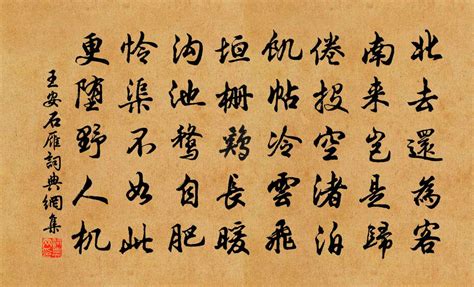 北去還為客
南来豈是歸
倦投空渚泊
飢帖冷雲飛
垣柵鷄長暖
溝池鶩自肥
怜渠不如此
更堕野人机
王安石雁詞典網集